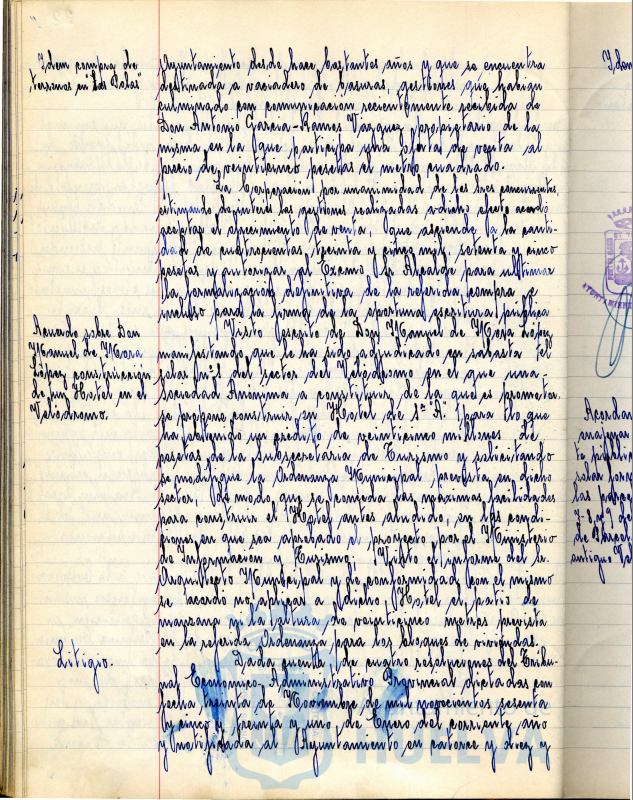 Idem compra de
terrenos en "Las Colas"
Ayuntamiento desde hace bastantes años y que se encuentra
destinada a vaciadero de basuras, gestiones que habían
culminado con comunicación recientemente recibida de
Don Antonio García-Ramos Vázquez propietario de la
misma en la que participa una oferta de venta al
precio de veinticinco pesetas el metro cuadrado.
La Corporación por unanimidad de los tres concurrentes,
estimando de interés las gestiones realizadas a dicho efecto acordó
aceptar el ofrecimiento de venta, que asciende a la canti-
dad de cuatrocientas treinta y cinco mil, setenta y cinco
pesetas y autorizar al Excmo. Sr. Alcalde para ultimar
la formalización definitiva de la referida compra e
incluso para la firma de la oportuna escritura pública
Acuerdo sobre Don
Manuel de Mora
López construcción
de un Hotel en el
Velódromo.
Visto escrito de Don Manuel de Mora López
manifestando que le ha sido adjudicado en subasta el
solar nº 1 del sector del Velódromo en el que una
Sociedad Anónima a constituir de la que es promotor
se propone construir un Hotel de 1ª A, para lo que
ha obtenido un crédito de veinticinco millones de
pesetas de la Subsecretaría de Turismo y solicitando
se modifique la Ordenanza Municipal prevista en dicho
sector, de modo que se conceda las máximas facilidades
para construir el Hotel antes aludido, en las condi-
ciones en que sea aprobado el proyecto por el Ministerio
de Información y Turismo, Visto el informe del Sr.
Arquitecto Municipal y de conformidad con el mismo
se acordó no aplicar a dicho Hotel el patio de
manzana ni la altura de veinticinco metros prevista
en la referida Ordenanza para los bloques de viviendas.
Litigio.
Dada cuenta de cuatro resoluciones del Tribu-
nal Económico Administrativo Provincial dictadas con
fecha treinta de Noviembre de mil novecientos sesenta
y cinco y treinta y uno de Enero del corriente año
y notificada al Ayuntamiento en catorce y diez y
Idem
Acordan